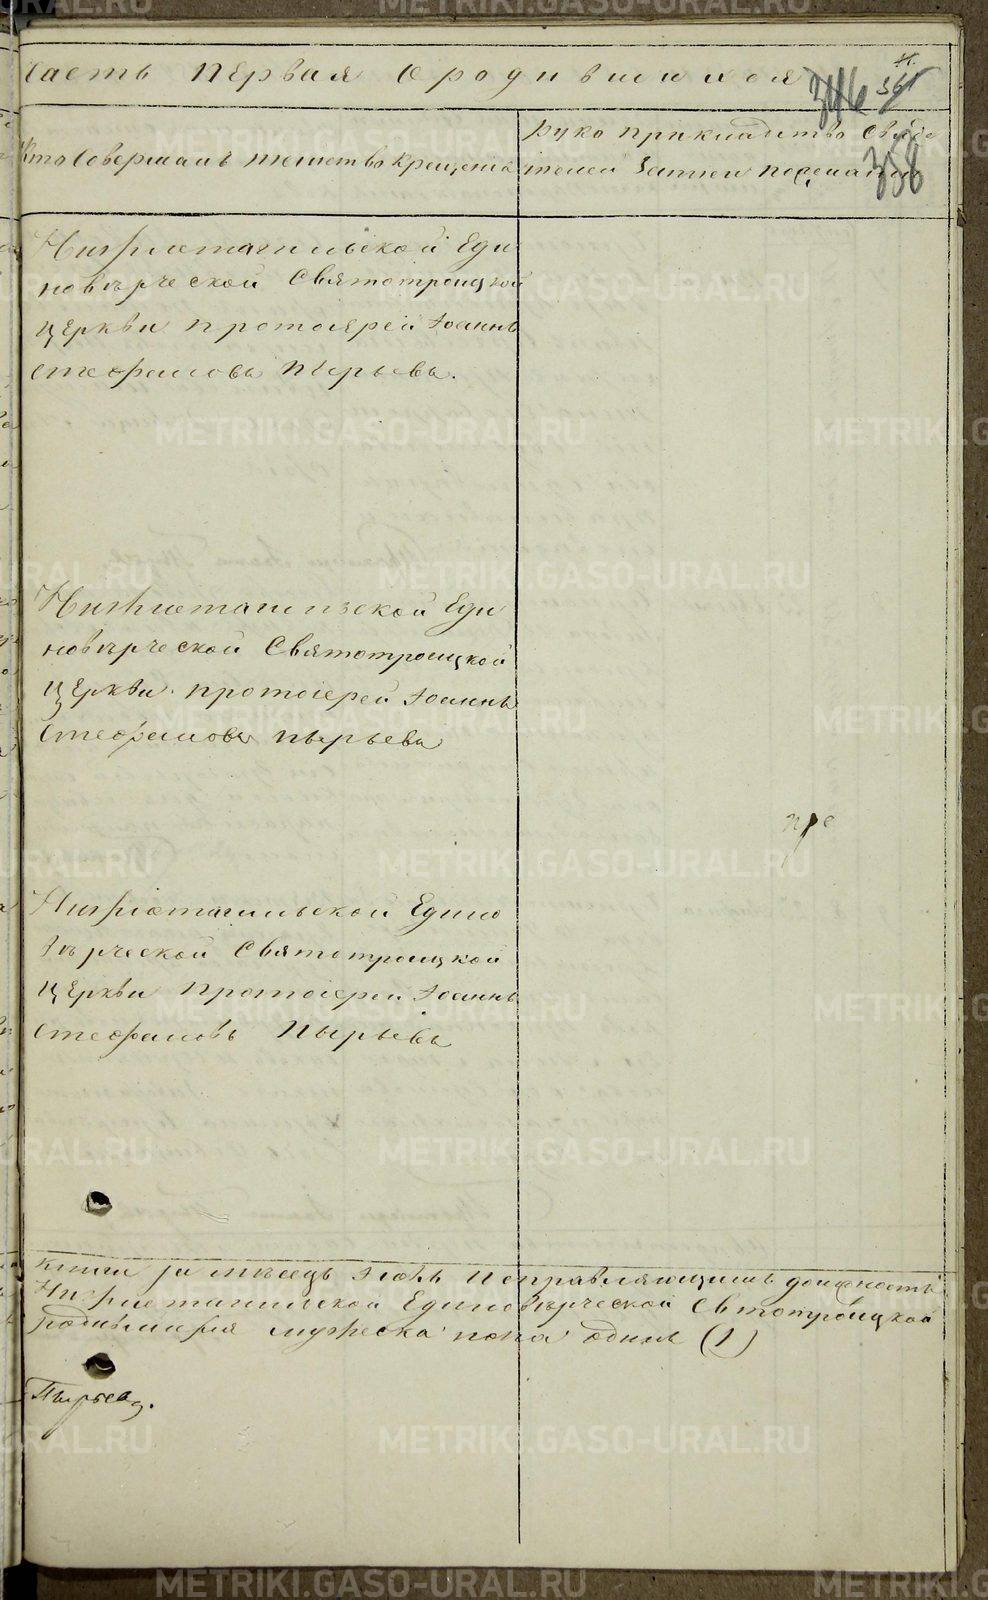 Часть первая о родившихся
346 361
358
Кто совершалъ таинство крещенія
Рукоприкладство свиде
телей записи по желанію
Нижнетагильской Еди
новѣрческой Святотроицкой
церкви протоіерей Іоаннъ
Стефановъ Пырьевъ.
Нижнетагильской Еди
новѣрческой Святотроицкой
церкви протоіерей Іоаннъ
Стефановъ Пырьевъ
Нижнетагильской Едино
вѣрческой Святотроицкой
церкви протоіерей Іоаннъ
Стефановъ Пырьевъ
книги за мѣсяцъ Іюль исправляющимъ должность
Нижнетагильской Единовѣрческой Святотроицкой
родившихся мужеска пола одинъ (1)
Пырьевъ.
METRIKI.GASO-URAL.RU